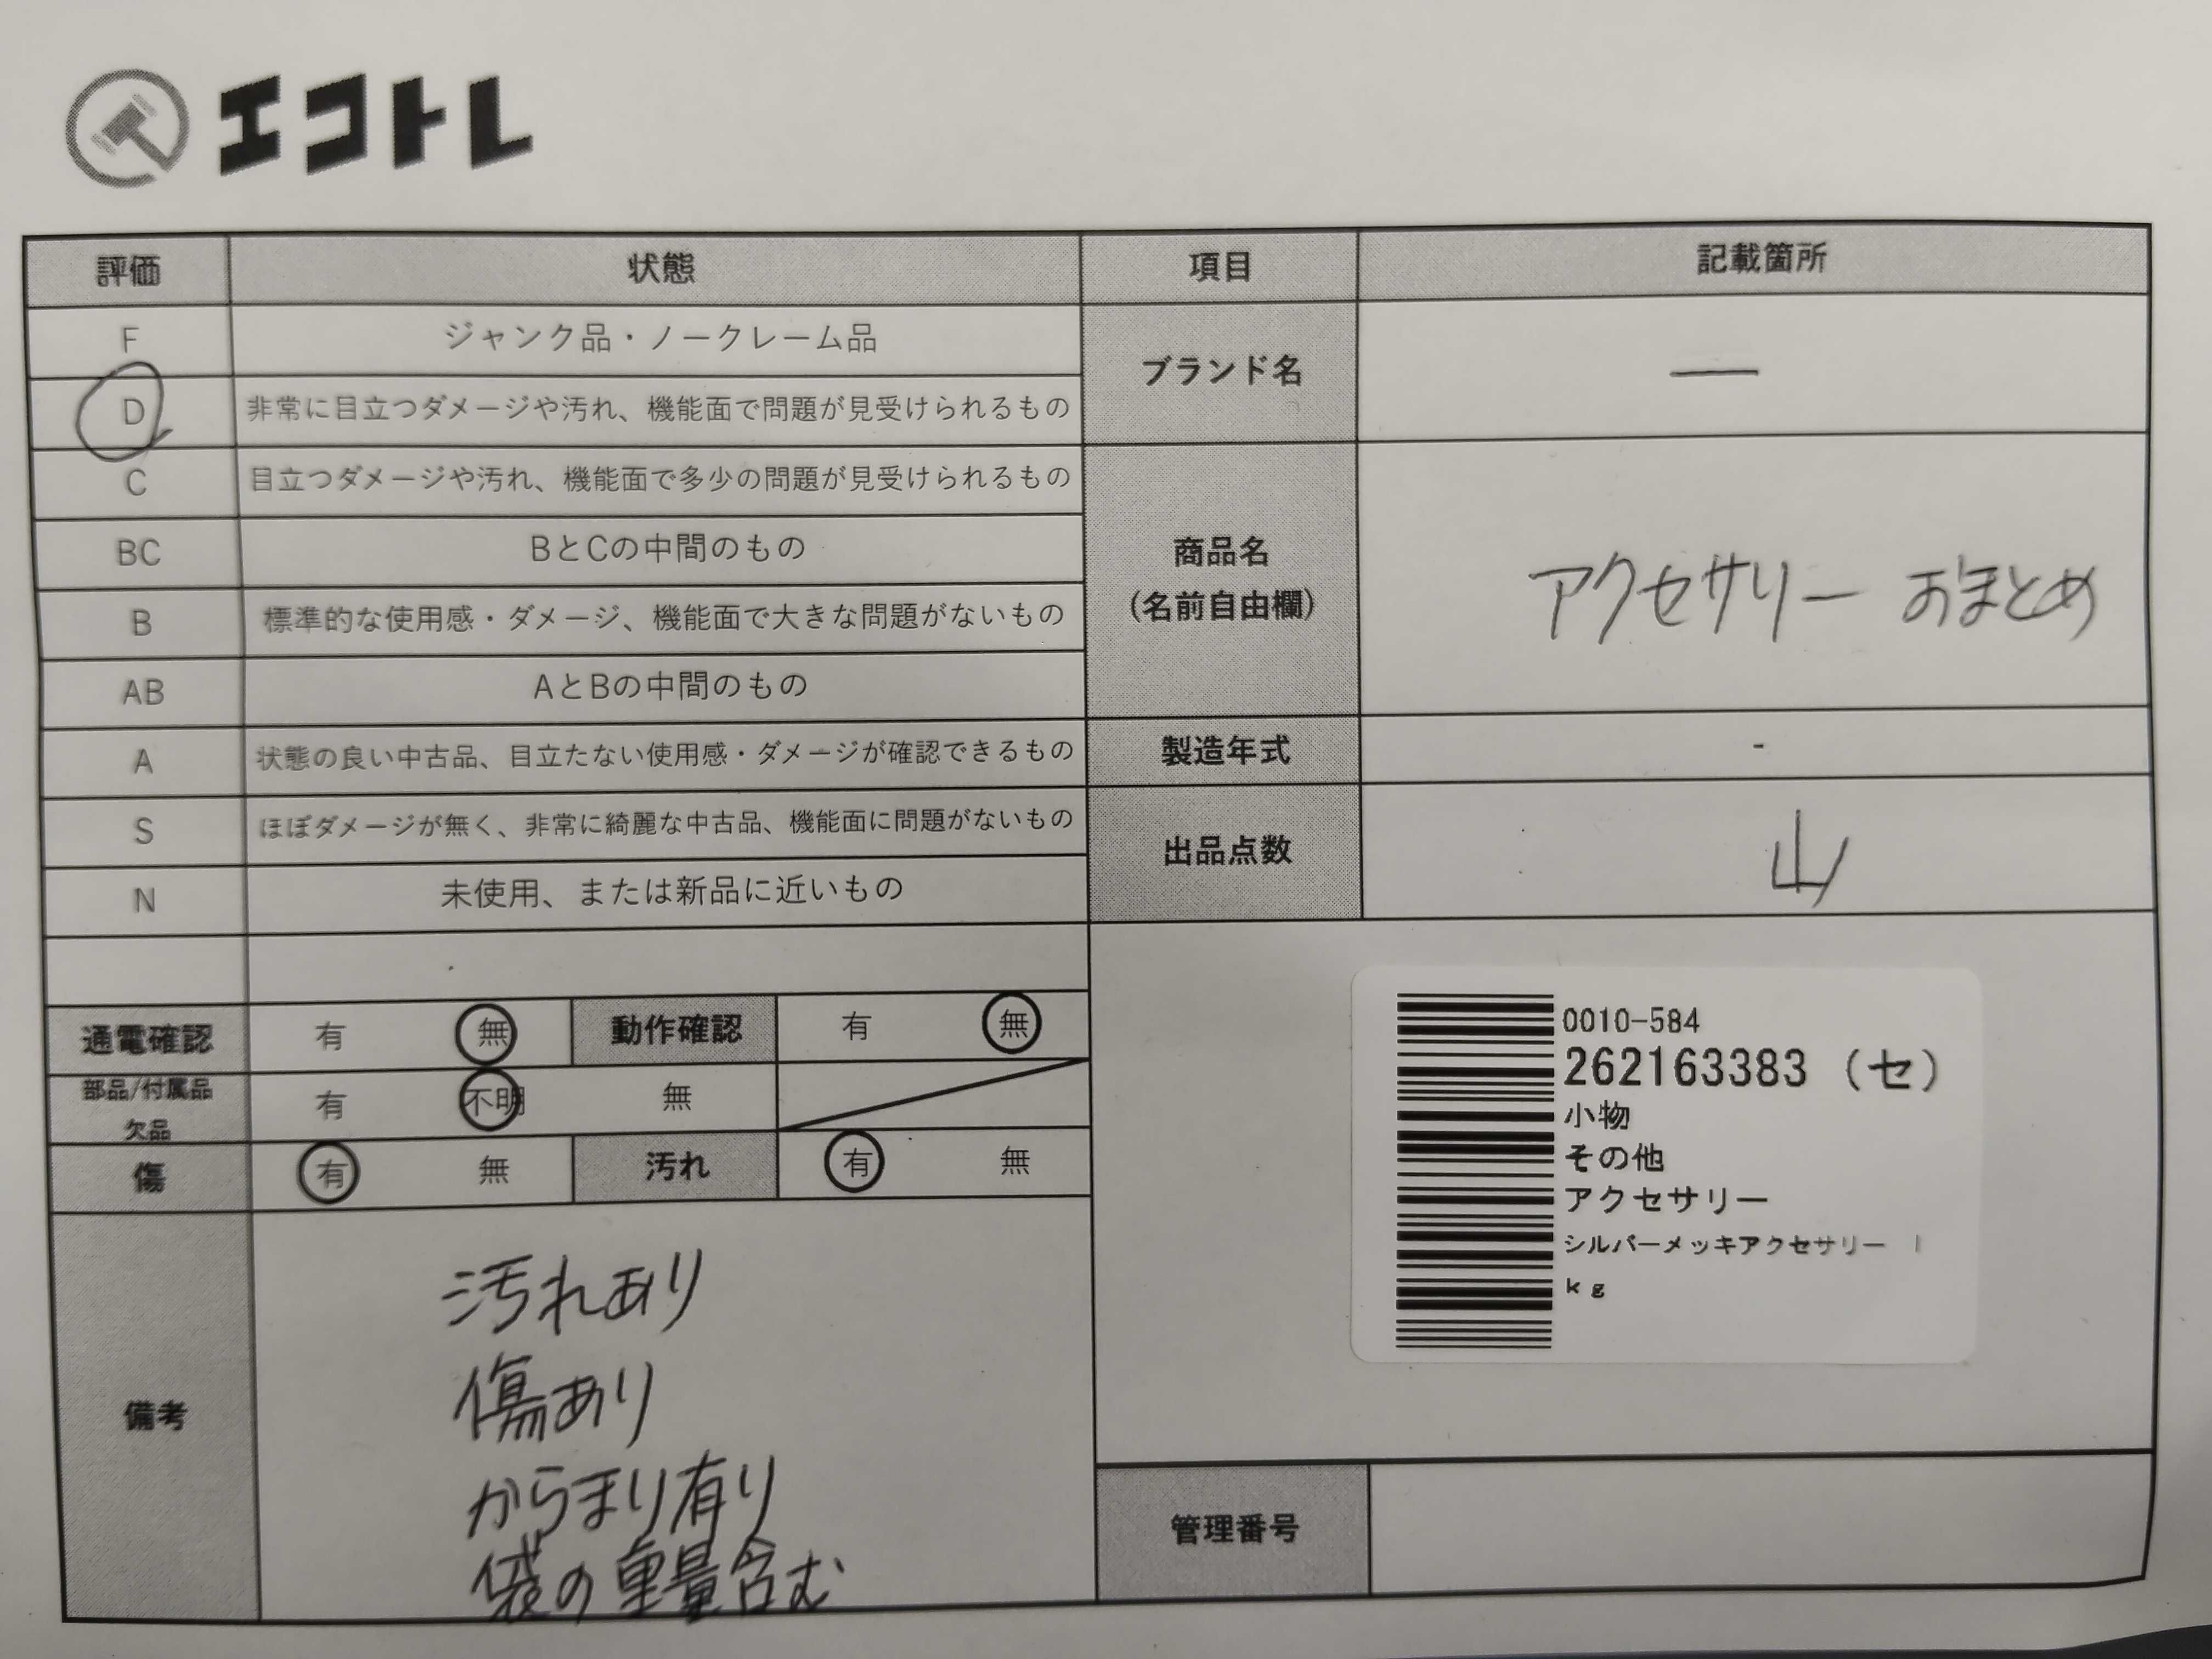 エコトレ
評価 状態 項目 記載箇所
F ジャンク品・ノークレーム品
D 非常に目立つダメージや汚れ、機能面で問題が見受けられるもの
C 目立つダメージや汚れ、機能面で多少の問題が見受けられるもの
BC BとCの中間のもの
B 標準的な使用感・ダメージ、機能面で大きな問題がないもの
AB AとBの中間のもの
A 状態の良い中古品、目立たない使用感・ダメージが確認できるもの
S ほぼダメージが無く、非常に綺麗な中古品、機能面に問題がないもの
N 未使用、または新品に近いもの
ブランド名 ―
商品名
(名前自由欄)
アクセサリー おまとめ
製造年式 -
出品点数 山
通電確認 有 無 動作確認 有 無
部品/付属品
欠品
有 不明 無
傷 有 無 汚れ 有 無
備考
汚れあり
傷あり
からまり有り
袋の重量含む
0010-584
262163383 (セ)
小物
その他
アクセサリー
シルバーメッキアクセサリー 1
kg
管理番号